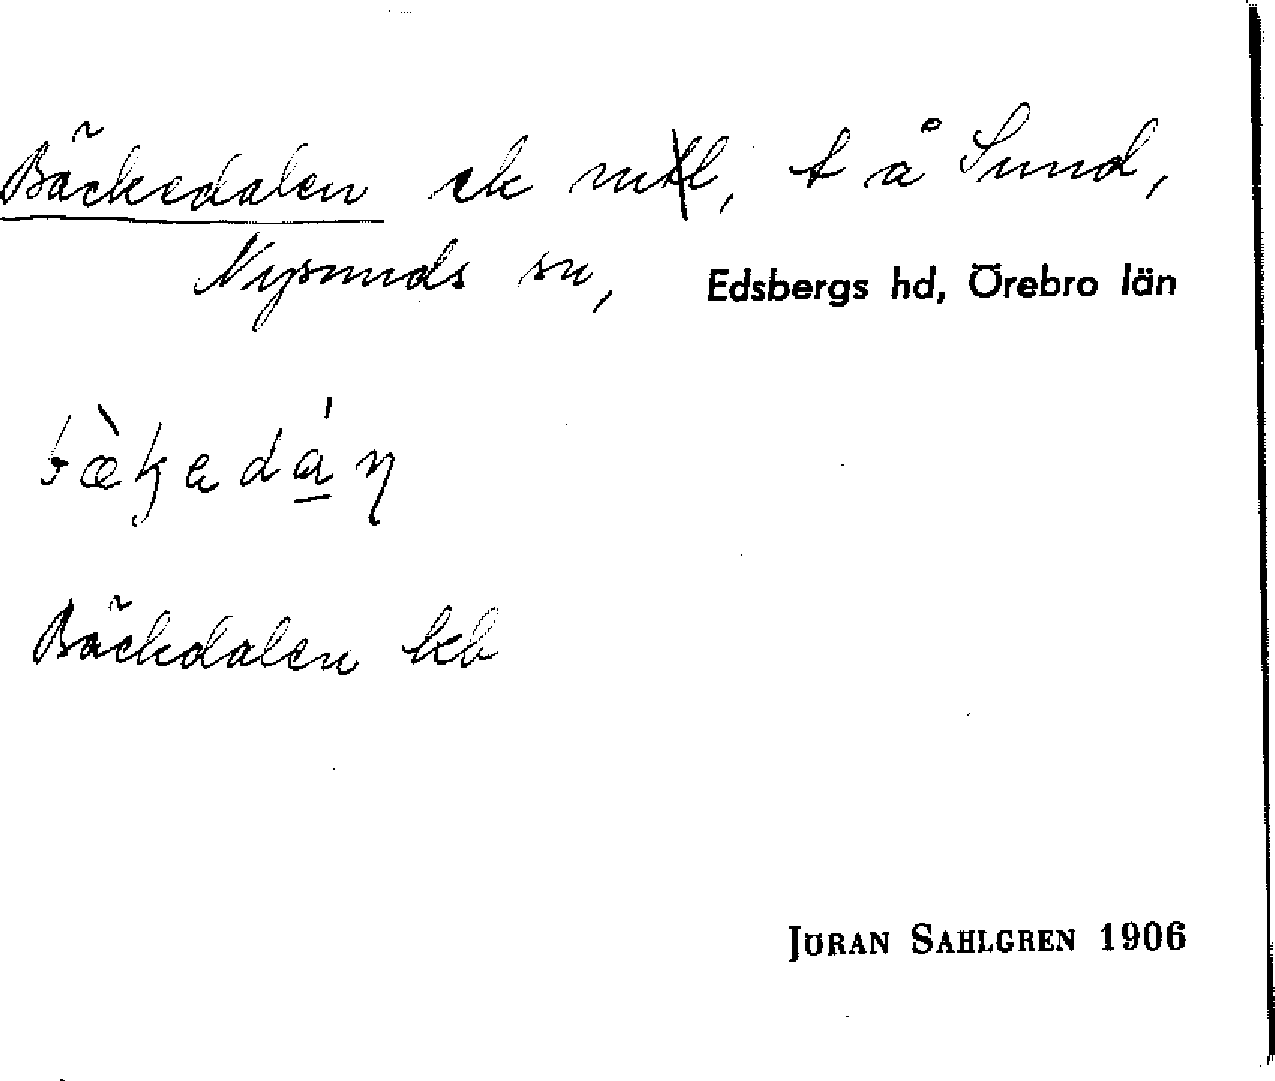 Bäckedalen ck mtl, t å Sund,
Nysunds sn, Edsbergs hd, Örebro län
Bäckdalen kb
JÖRAN SAHLGREN 1906